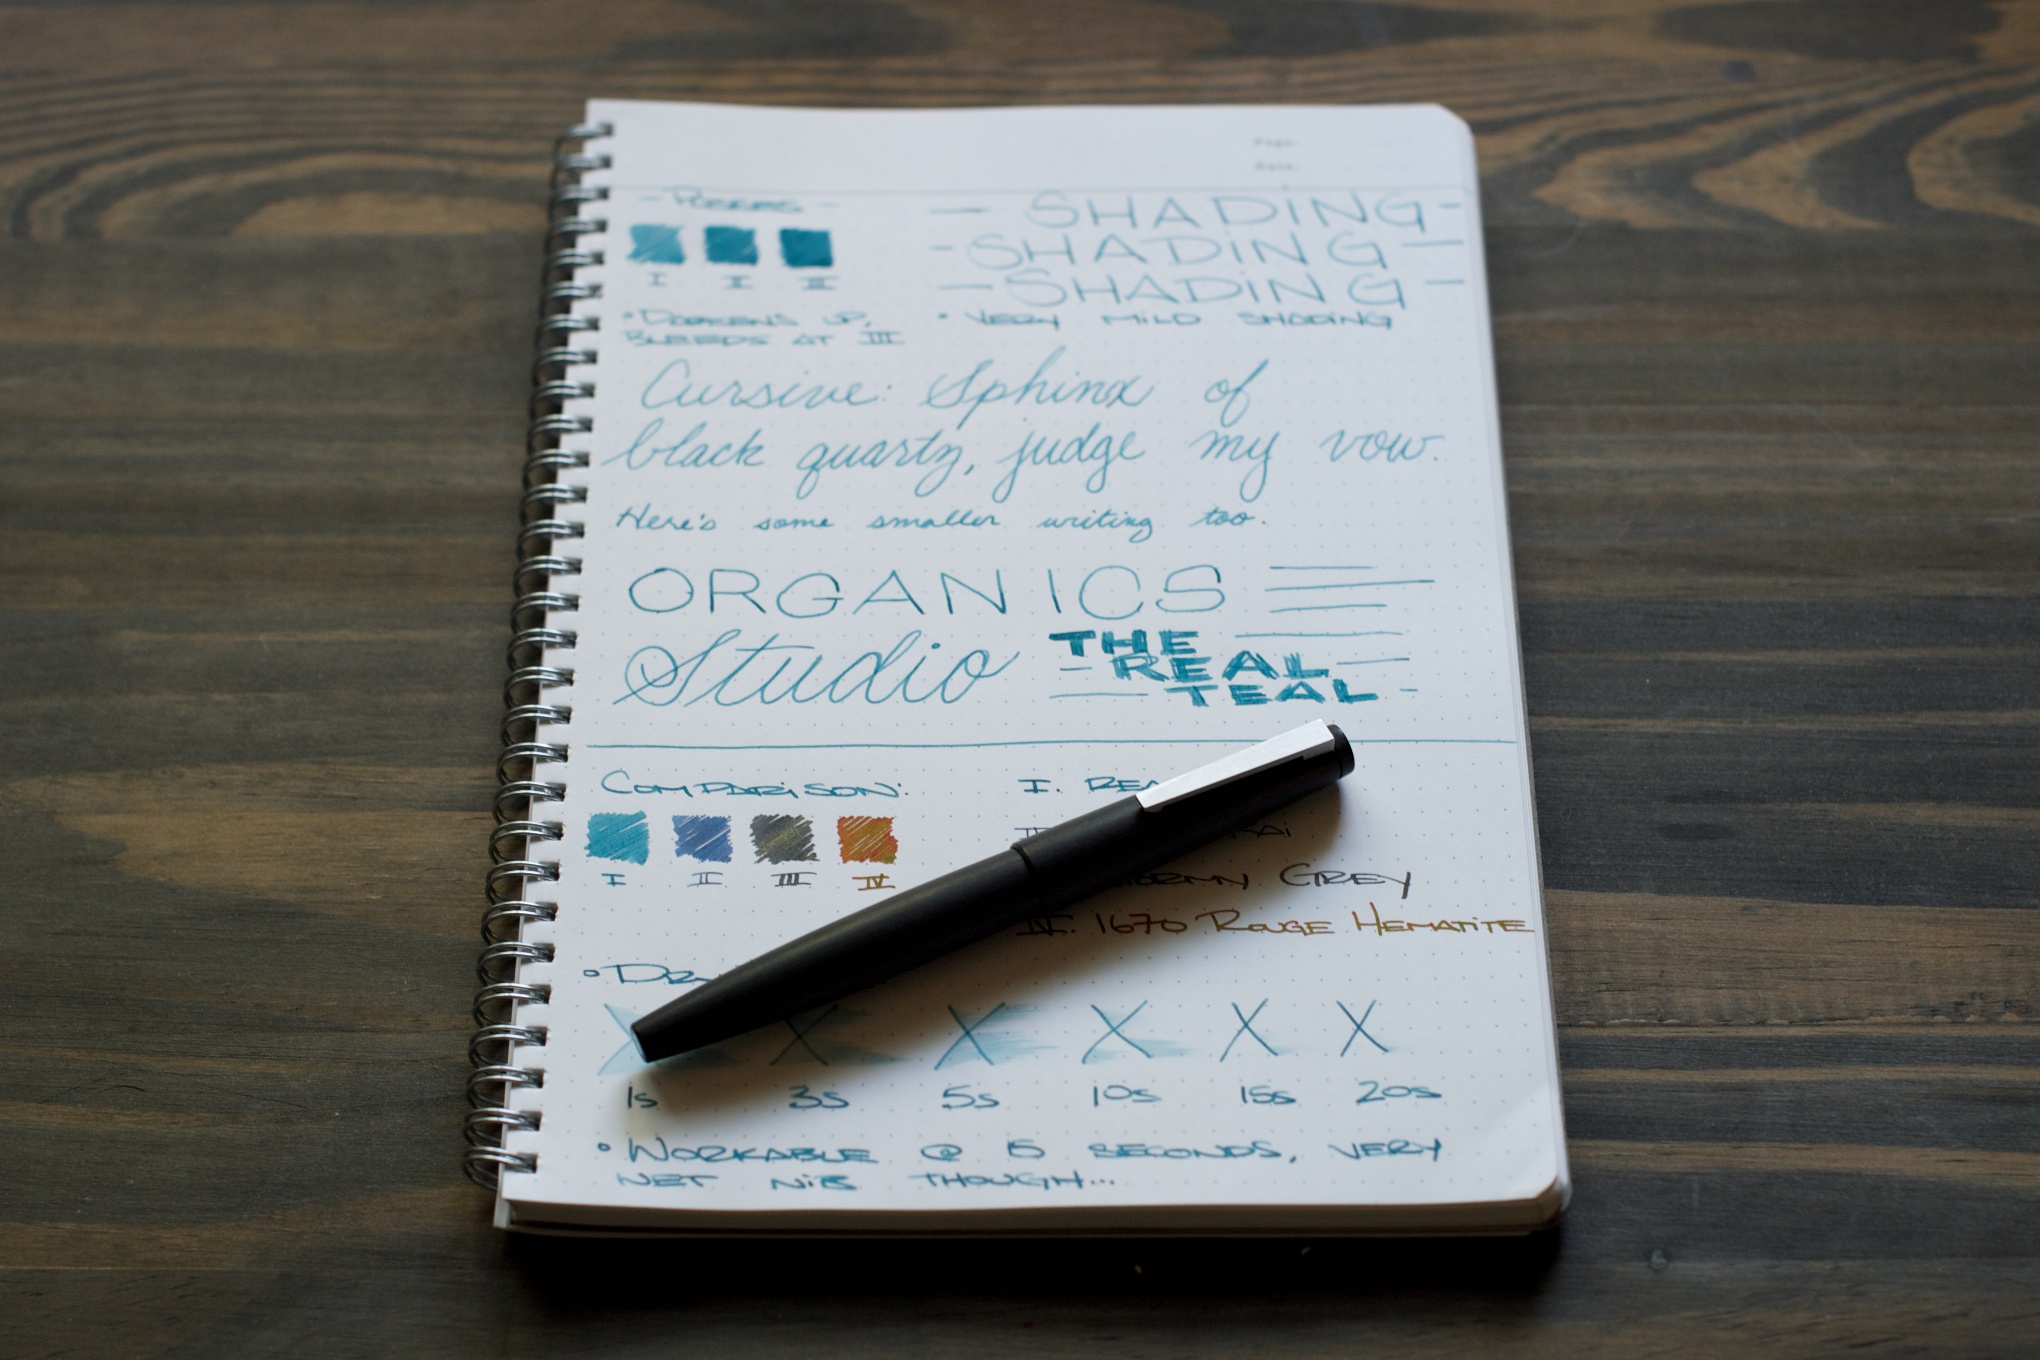 Page:
Date:
- PASSES -
- SHADING -
- SHADING -
- SHADING -
I II III
• DARKENS UP,
BLEEDS AT III
• VERY MILD SHADING
Cursive: Sphinx of
black quartz, judge my vow.
Here's some smaller writing too.
ORGANICS
Studio
THE
REAL
TEAL
COMPARISON:
I II III IV
I. REA
KAI
GREY
IV. 1670 ROUGE HEMATITE
1s 3s 5s 10s 15s 20s
• WORKABLE @ 15 SECONDS, VERY
WET NIB THOUGH...